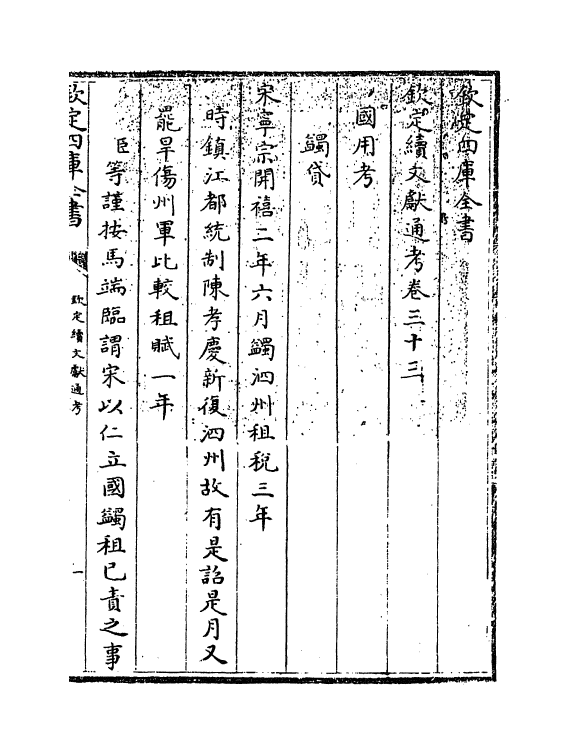 欽定四庫全書
欽定續文獻通考卷三十三
國用考
蠲貸
宋寧宗開禧二年六月蠲泗州租稅三年
時鎮江都統制陳孝慶新復泗州故有是詔是月又
罷旱傷州軍比較租賦一年
臣等謹按馬端臨謂宋以仁立國蠲租已責之事
欽定四庫全書
欽定續文獻通考
一